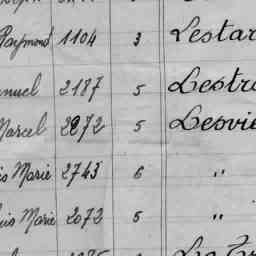 Raymond 1104 3 Lestar
nuel 2187 5 Lestr
Marcel 2272 5 Lesvie
is Marie 2743 6 "
uis Marie 2073 5 "